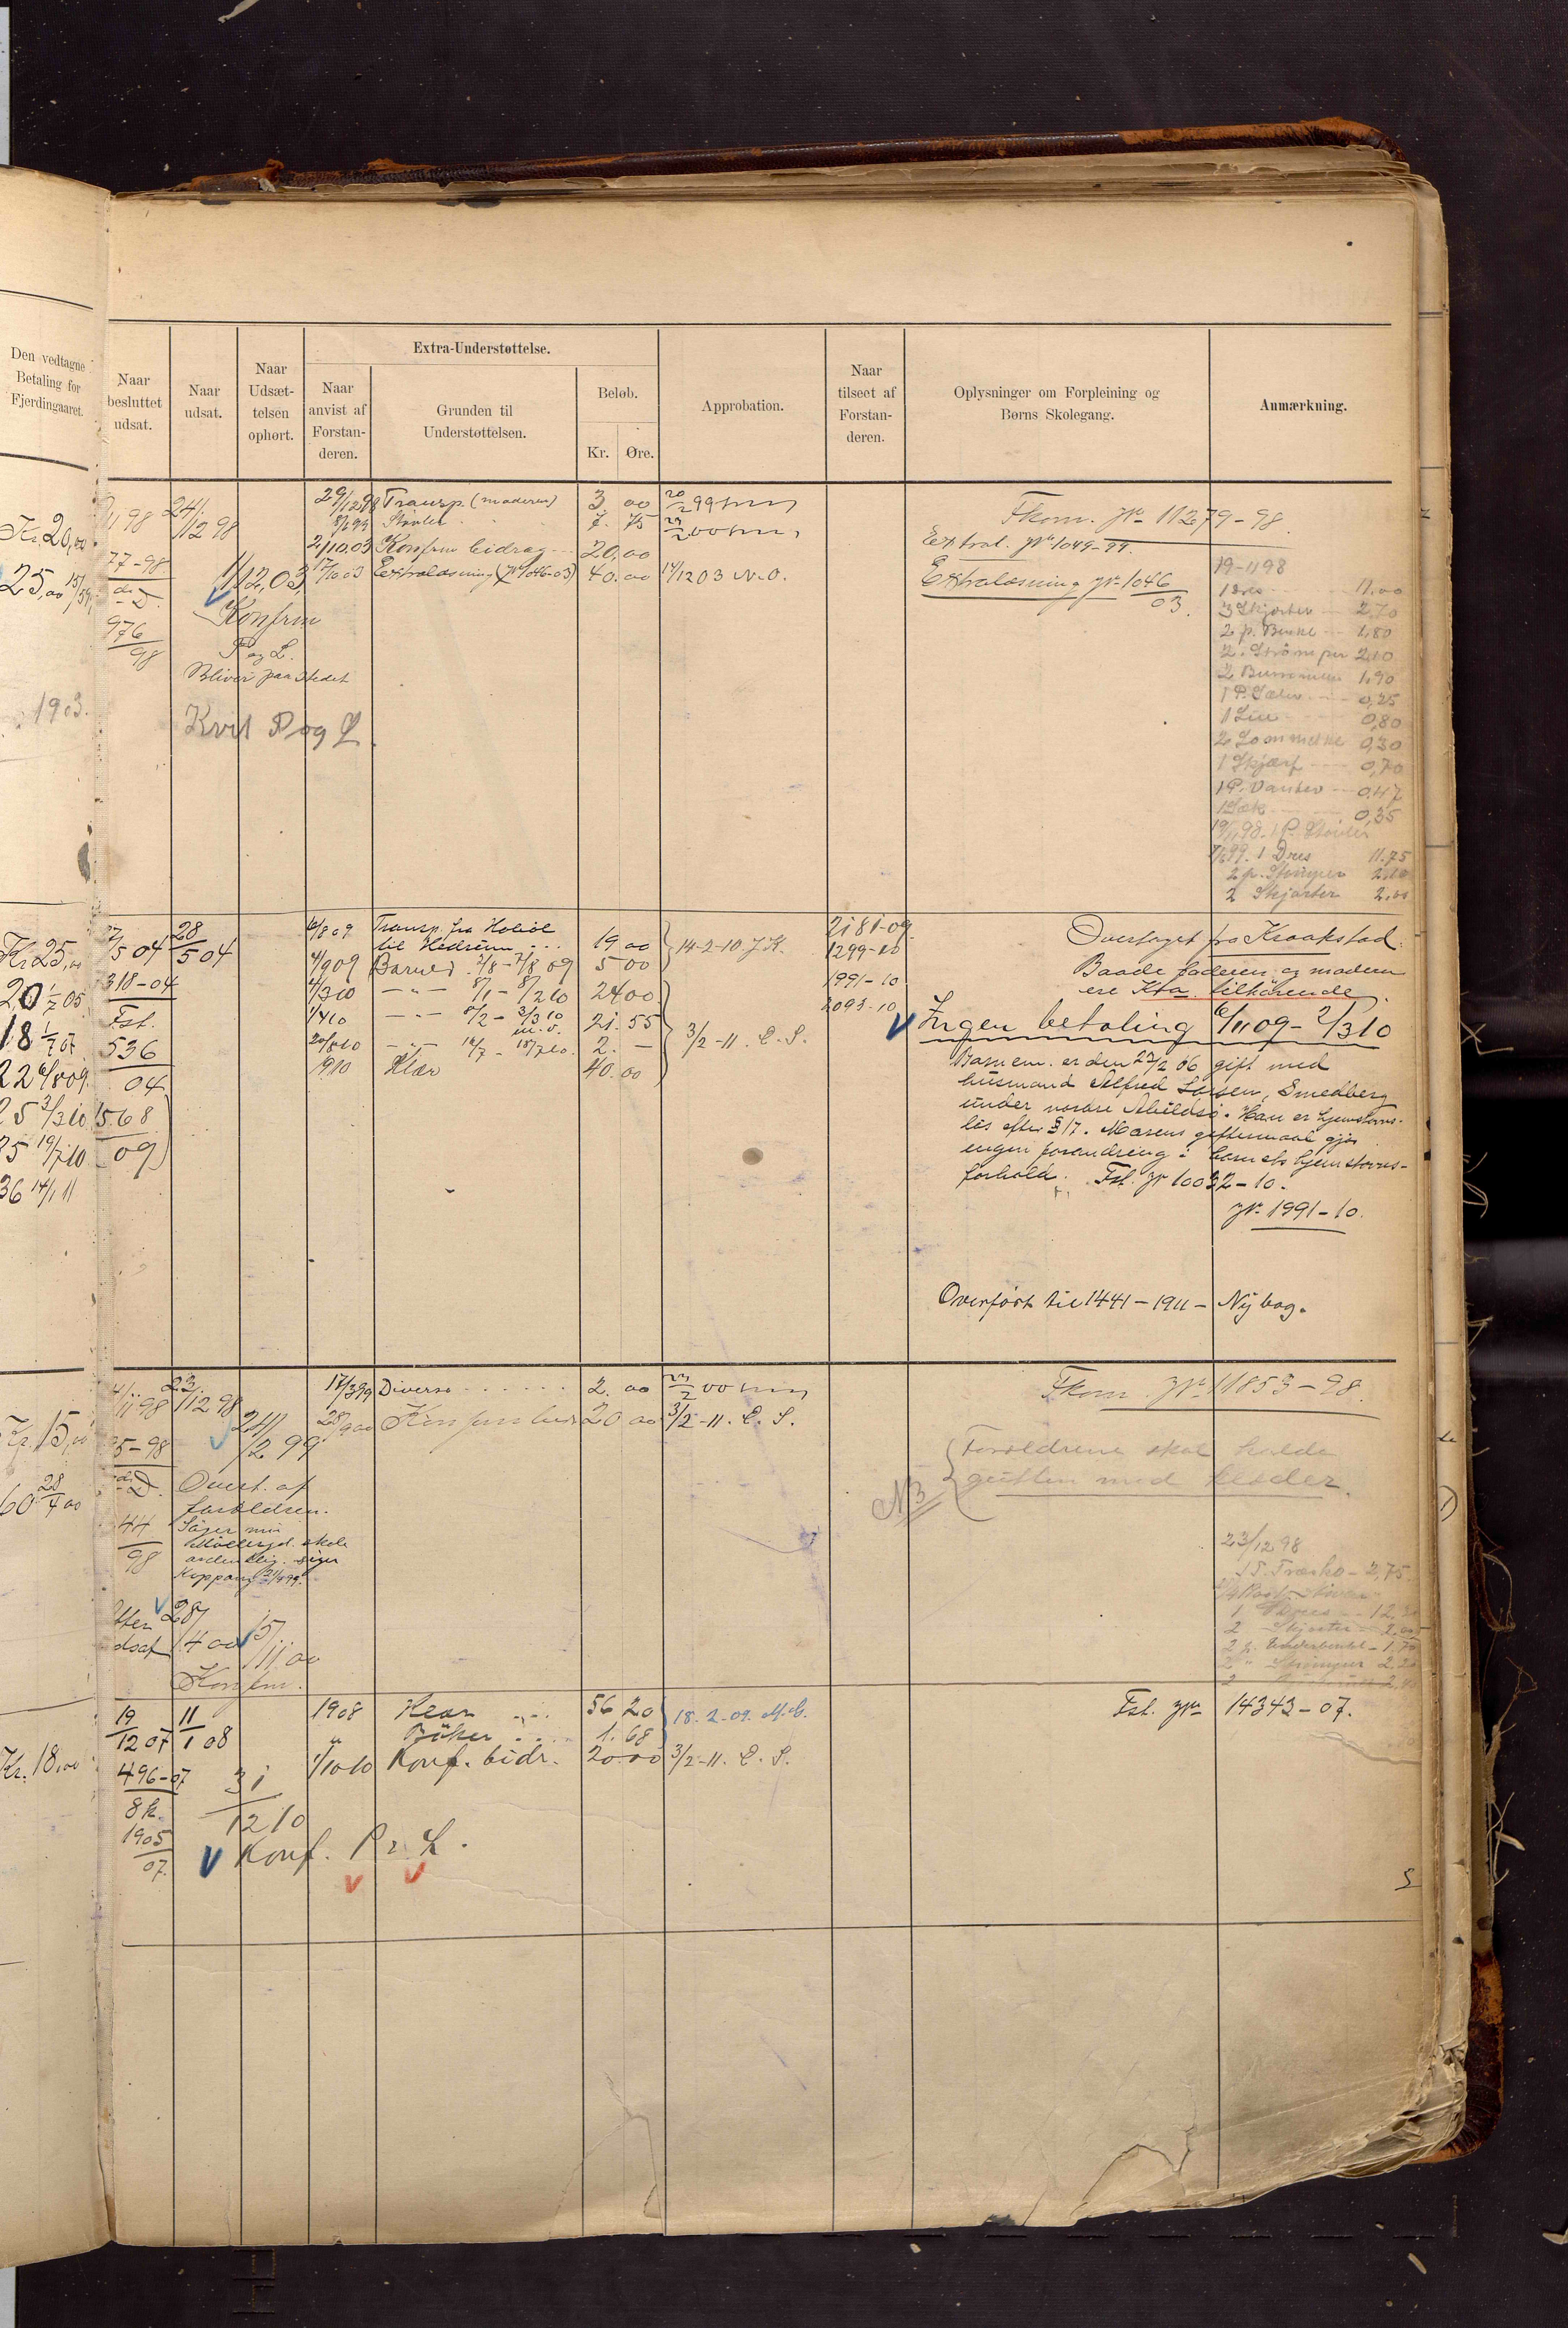 Den vedtagne
Betaling for
Fjerdingaaret.
Naar
besluttet
udsat.
Naar
udsat.
Naar
Udsæt-
telsen
ophørt.
Extra-Understøttelse.
Naar
anvist af
Forstan-
deren.
Grunden til
Understøttelsen.
Beløb.
Kr. Øre.
Approbation.
Naar
tilseet af
Forstan-
deren.
Oplysninger om Forpleining og
Børns Skolegang.
Anmærkning.
Kr. 20,00
25,00
1903.
77-98
976
98
24/12 98
1/12,03
Konfrm
P og L.
Bliver paa stedet
Kvit P og L.
29/12 98 Transp. (moderen) 3 00 20/2 99
8/6 99 Støvler 7. 75 23/2 00
2/10.03 Konfrm bidrag 20,00
17/10 03 Extralæsning (Jr 1046-03) 40.00 14/12 03 N.O.
Fkom. Jr 11279-98
Extral. Jr 1049-99.
Extralæsning Jr 1046
03.
19-11 98
1 Dres 11.00
3 Skjorter 2,70
2 p. Benkl 1,80
2. Strømper 2,10
1,90
0,25
1 Lue 0,80
2 Lommetkl 0,30
1 Skjærf 0,70
1 P. Vanter 0.47
1 Sæk 0,35
19/11 98. 1 P. Støvler
99. 1 Dres 11.75
2 p. Strømper 2,20
2 Skjorter 2,00
Kr 25,00
20 1/7 05
18 1/7 07
22 6/8 09.
25 3/3 10
35 19/7 10.
36 14/1 11
27/5 04
28/5 04
318-04
Fst.
536
04
568
09
6/8 09 Transp. fra Hobøl
til Hedrum 19,00
4/9 09 Barnet 2/8-7/8 09 5 00
14-2-10 J.K.
4/3 10 -"- 8/1-8/2 10 24 00
1/4 10 -"- 8/2-3/3 10
m.v. 21. 55
20/8 10 -"- 16/7-18/7 10. 2. -
1910 Klær 40.00
3/2-11. C. S.
2181-09
1299-10
1991-10
2093-10
Overtaget fra Kraakstad.
Baade faderen og modern
ere Kra. tilhørende.
Ingen betaling 6/11 09-2/3 10
Barnem. er den 23/2 06 gift med
husmand Alfred Larsen, Smedberg
under nordre Abildsø. Han er hjemstavns-
løs efter § 17. Morens giftermaal gjør
ingen forandring i barnets hjemstavns-
forhold. Fst. Jr 10032-10.
Jr. 1991-10.
Overført til 1441-1911- Ny bog.
Kr. 15,00
60 28/4 00
4/11 98
23/12 98
24/2 99
95-98
44
98
Overt. af
forældren.
Siger min
Møllergd. skole
ordentlig. siger
Koppang 21/4 99.
Atter
udsat
28/4 00
5/11.00
Konfrm.
17/3 99 Diverse 2. 00 23/2 00
28/9 00 Konfrm bidr 20 00 3/2-11. C. S.
Fkom. Jr 11853-98.
NB
Forældrene skal holde
gutten med klæder.
23/12 98
1 P. Træsko - 2,75.
1 Dres 12,
2 Skjorter 2,00
2 p. Underbenkl - 1.70
2 " Strømper 2,20
Kr. 18,00
19/12 07
11/1 08
496-07
8k.
1905
07.
31/12 10
Konf. P. L.
1908 Klær 56 20
" Bøker 1. 68
18.2.09. M.C.
1/10 10 Konf. bidr. 20.00 3/2-11. C. S.
Fst. Jr 14343-07.